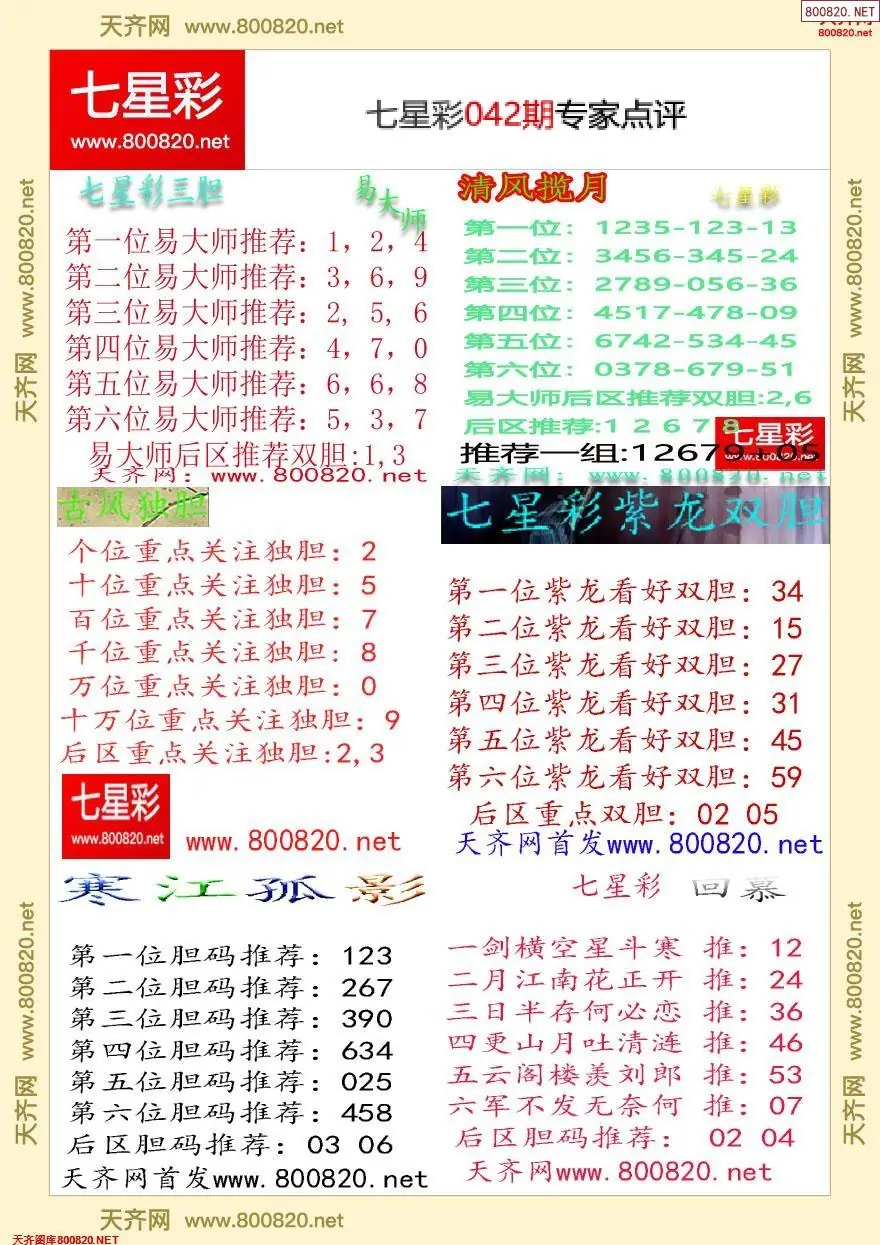 800820.NET
天齐网 www.800820.net
800820.net
七星彩
www.800820.net
七星彩042期专家点评
七星彩三胆 易大师
第一位易大师推荐：1，2，4
第二位易大师推荐：3，6，9
第三位易大师推荐：2，5，6
第四位易大师推荐：4，7，0
第五位易大师推荐：6，6，8
第六位易大师推荐：5，3，7
易大师后区推荐双胆:1,3
天齐网：www.800820.net
清风揽月 七星彩
第一位：1235-123-13
第二位：3456-345-24
第三位：2789-056-36
第四位：4517-478-09
第五位：6742-534-45
第六位：0378-679-51
易大师后区推荐双胆:2,6
后区推荐:1 2 6 7 8
推荐一组:12679+05
七星彩
www.800820.net
天齐网：www.800820.net
古风独胆
个位重点关注独胆：2
十位重点关注独胆：5
百位重点关注独胆：7
千位重点关注独胆：8
万位重点关注独胆：0
十万位重点关注独胆：9
后区重点关注独胆:2,3
七星彩
www.800820.net
www.800820.net
七星彩紫龙双胆
第一位紫龙看好双胆：34
第二位紫龙看好双胆：15
第三位紫龙看好双胆：27
第四位紫龙看好双胆：31
第五位紫龙看好双胆：45
第六位紫龙看好双胆：59
后区重点双胆：02 05
天齐网首发www.800820.net
寒江孤影
第一位胆码推荐：123
第二位胆码推荐：267
第三位胆码推荐：390
第四位胆码推荐：634
第五位胆码推荐：025
第六位胆码推荐：458
后区胆码推荐：03 06
天齐网首发www.800820.net
七星彩 回慕
一剑横空星斗寒 推：12
二月江南花正开 推：24
三日半存何必恋 推：36
四更山月吐清涟 推：46
五云阁楼羡刘郎 推：53
六军不发无奈何 推：07
后区胆码推荐： 02 04
天齐网www.800820.net
天齐网 www.800820.net
天齐网 www.800820.net
天齐网 www.800820.net
天齐网 www.800820.net
天齐网 www.800820.net
天齐图库800820.NET